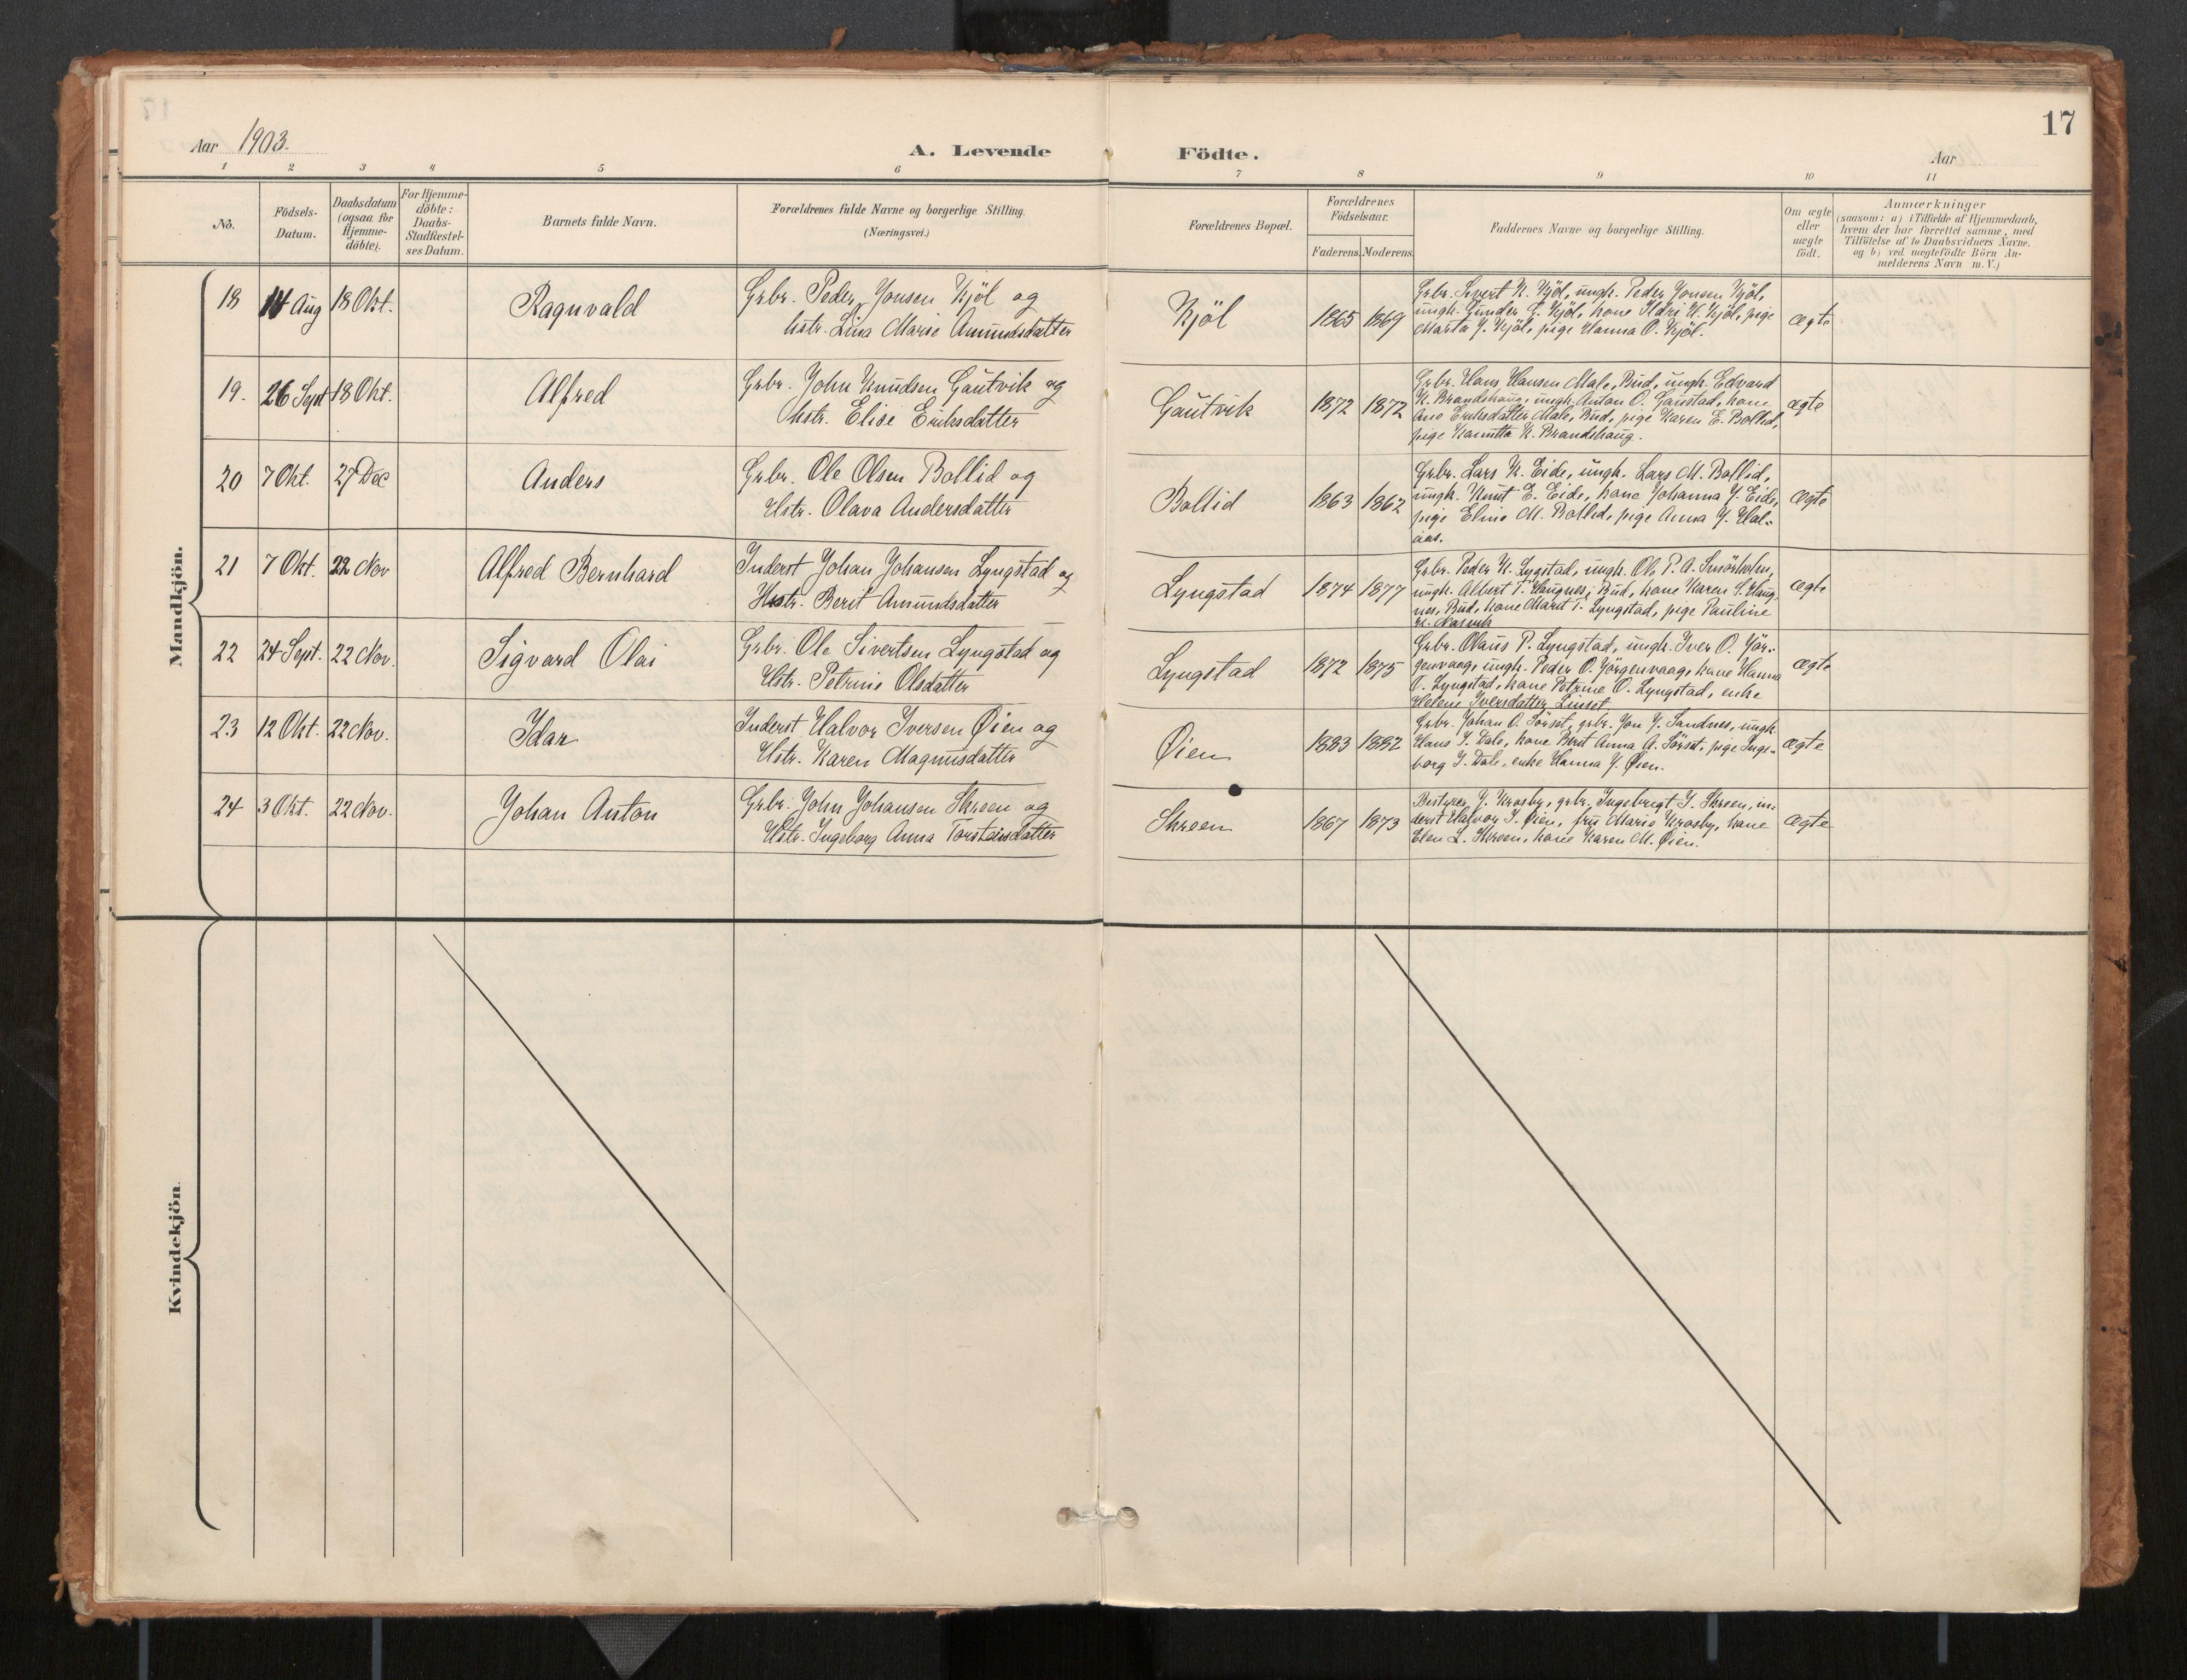 17
Aar 1903.
A. Levende Födte.
Aar
1 2 3 4 5 6 7 8 9 10 11
No.
Födsels-Datum.
Daabsdatum (ogsaa for Hjemme-döbte).
For Hjemme-döbte: Daabs-Stadfæstel-ses Datum.
Barnets fulde Navn.
Forældrenes fulde Navne og borgerlige Stilling.
(Næringsvei.)
Forældrenes Bopæl.
Forældrenes Födselsaar.
Faderens. Moderens.
Faddernes Navne og borgerlige Stilling.
Om ægte eller uægte födt.
Anmærkninger
(saasom: a) i Tilfælde af Hjemmedaab,
hvem der har forrettet samme, med
Tilföielse af to Daabsvidners Navne.
og b) ved uægtefödte Börn An-
melderens Navn m.V.)
Mandkjön.
18 14 Aug 18 Okt. Ragnvald
Grbr. Peder Jonsen Kjöl og
hstr. Lina Marie Amundsdatter
Kjöl 1865 1869
Grbr. Sivert K. Kjöl, ungk. Peder Jonsen Kjöl,
ungk. Gunder G. Kjöl, kone Kari K. Kjöl, pige
Marta J. Kjöl, pige Hanna O. Kjöl.
ægte
19. 26 Sept 18 Okt. Alfred
Grbr. John Knudsen Gautvik og
hstr. Elise Eriksdatter
Gautvik 1872 1872
Grbr. Hans Hansen Male, Bud, ungk. Edvard
K. Brandshaug, ungk. Anton O. Gaustad, kone
Ane Eriksdatter Male, Bud, pige Karen E. Bollid,
pige K. Brandshaug.
ægte
20 7 Okt. 27 Dec Anders
Grbr. Ole Olsen Bollid og
Hstr. Olava Andersdatter
Bollid 1863 1862
Grbr. Lars K. Eide, ungk. Lars M. Bollid,
ungk. Knut E. Eide, kone Johanna J. Eide,
pige Eline M. Bollid, pige Anna J. Hal-
aas.
ægte
21 7 Okt. 22 Nov Alfred Bernhard
Inderst Johan Johansen Lyngstad og
Hstr. Berit Amundsdatter
Lyngstad 1874 1877
Grbr. Peder K. Lygstad, ungk. Ole P. A. Smörholm,
ungk. Albert T. Haugnes, Bud, kone Karen S. Haug-
nes, Bud, kone Marit T. Lyngstad, pige Pauline
ægte
22 24 Sept. 22 Nov. Sigvard Olai
Grbr. Ole Sivertsen Lyngstad og
Hstr. Petrine Olsdatter
Lyngstad 1872 1875
Grbr. Olaus P. Lyngstad, ungk. Iver O. Jör-
genvaag, ungk. Peder O. Jörgenvaag, kone Hanna
O. Lyngstad, kone Petrine O. Lyngstad, enke
Helene Iversdatter Linset
ægte
23 12 Okt. 22 Nov. Idar
Inderst Halvor Iversen Øien og
Hstr. Karen Magnusdatter
Øien 1883 1882
Grbr. Johan O. Sörset, grbr. Jon J. Sandnes, ungk.
Hans I. Dale, kone Berit Anna A. Sörset, pige Inge-
borg I. Dale, enke Hanna J. Øien.
ægte
24 3 Okt. 22 Nov. Johan Anton
Grbr. John Johansen Skreen og
Hstr. Ingeborg Anna Torstensdatter
Skreen 1867 1873
Bestyrer J. Krosby, grbr. Ingebrigt J. Skreen, in-
derst Halvor I. Øien, fru Marie Krosby, kone
Elen L. Skreen, kone Karen M. Øien.
ægte
Kvindekjön.